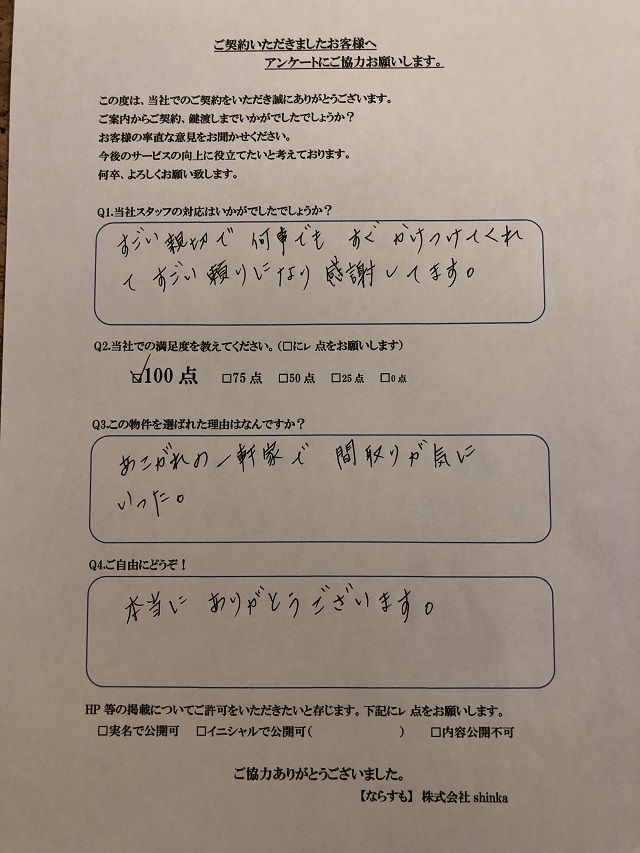 ご契約いただきましたお客様へ
アンケートにご協力お願いします。
この度は、当社でのご契約をいただき誠にありがとうございます。
ご案内からご契約、鍵渡しまでいかがでしたでしょうか？
お客様の率直な意見をお聞かせください。
今後のサービスの向上に役立てたいと考えております。
何卒、よろしくお願い致します。
Q1.当社スタッフの対応はいかがでしたでしょうか？
すごい親切で 何事でも すぐ かけつけてくれ
て すごい頼りになり 感謝してます。
Q2.当社での満足度を教えてください。(□にレ点をお願いします)
☑100点 □75点 □50点 □25点 □0点
Q3.この物件を選ばれた理由はなんですか？
あこがれの一軒家で 間取りが気に
いった。
Q4.ご自由にどうぞ！
本当に ありがとうございます。
HP等の掲載についてご許可をいただきたいと存じます。下記にレ点をお願いします。
□実名で公開可 □イニシャルで公開可( ) □内容公開不可
ご協力ありがとうございました。
【ならすも】 株式会社shinka